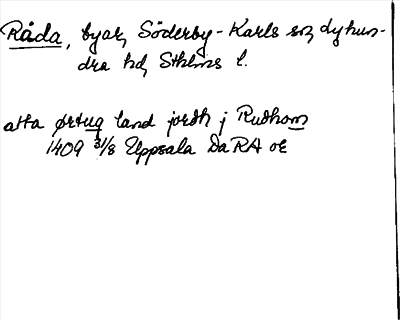 Råda, byar, Söderby-Karls sn, Lyhun-
dra hd, Sthlms l.
atta ørtug land jordh j Rudhom
1409 31/8 Uppsala DaRA or